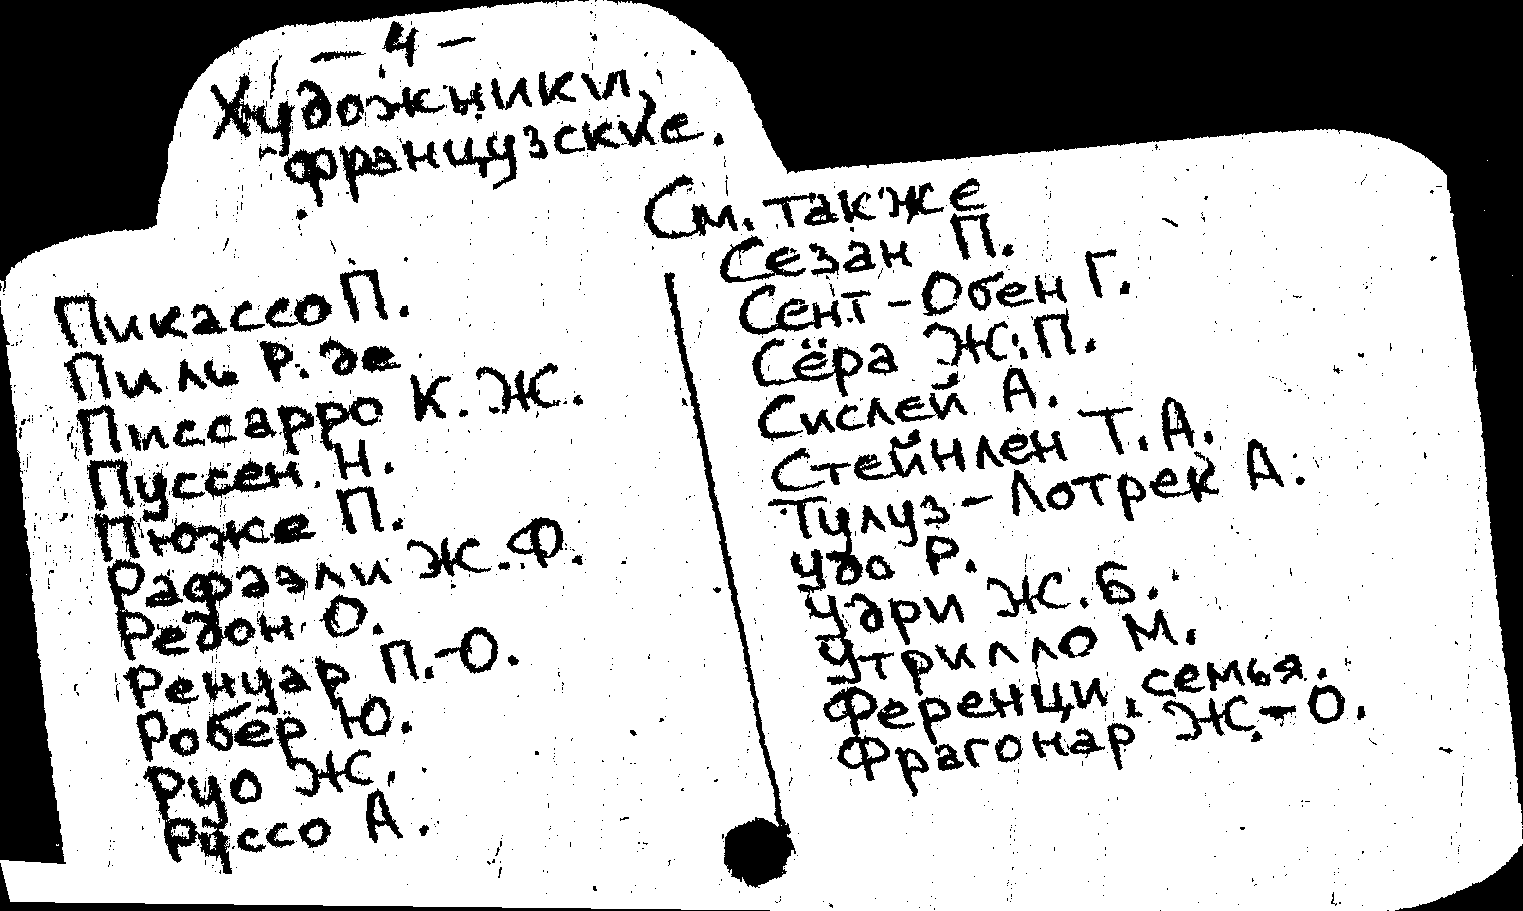 — 4 —
Художники,
французские.
См. также
Пикассо П.
Пиль Р. де
Писсарро К. Ж.
Пуссен Н.
Пюже П.
Рафаэли Ж.Ф.
Редон О.
Ренуар П.-О.
Робер Ю.
Руо Ж.
Руссо А.
Сезан П.
Сент-Обен Г.
Сёра Ж.П.
Сислей А.
Стейнлен Т.А.
Тулуз-Лотрек А.
Удо Р.
Удри Ж.Б.
Утрилло М.
Ференци, семья.
Фрагонар Ж.-О.